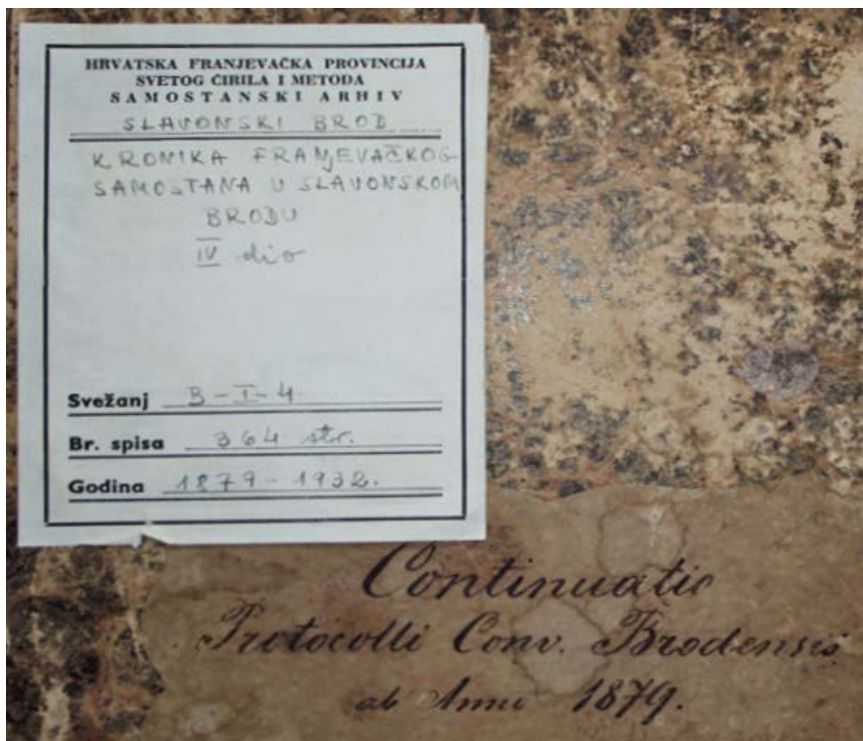 HRVATSKA FRANJEVAČKA PROVINCIJA
SVETOG ĆIRILA I METODA
SAMOSTANSKI ARHIV
SLAVONSKI BROD
KRONIKA FRANJEVAČKOG
SAMOSTANA U SLAVONSKOM
BRODU
IV dio
Svežanj B-I-4
Br. spisa 364 str.
Godina 1879-1932.
Continuatio
Protocolli Conv. Brodensis
ab Anno 1879.